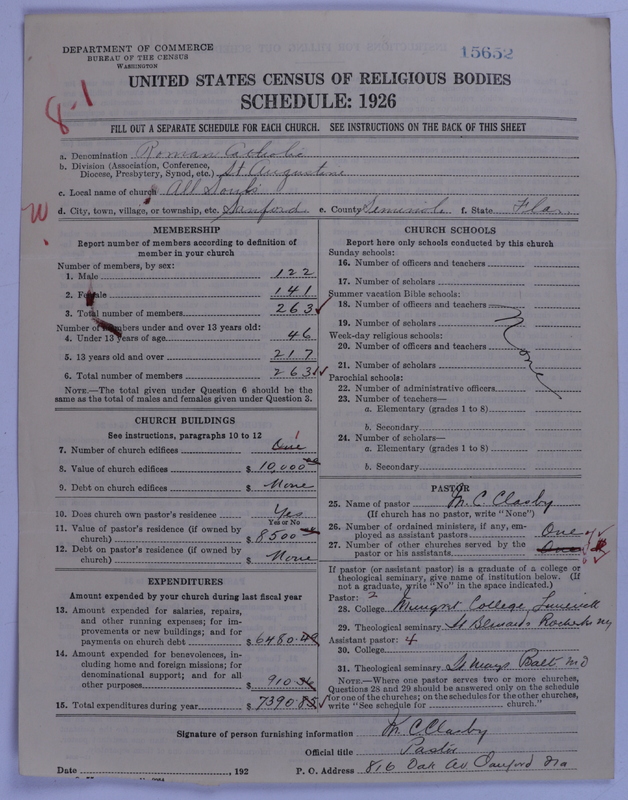 DEPARTMENT OF COMMERCE
BUREAU OF THE CENSUS
WASHINGTON
15652
8-1
UNITED STATES CENSUS OF RELIGIOUS BODIES
SCHEDULE: 1926
FILL OUT A SEPARATE SCHEDULE FOR EACH CHURCH. SEE INSTRUCTIONS ON THE BACK OF THIS SHEET
a. Denomination Roman Catholic
b. Division (Association, Conference, Diocese, Presbytery, Synod, etc.) St. Augustine
c. Local name of church All Souls
W.
d. City, town, village, or township, etc. Sanford e. County Seminole f. State Fla
MEMBERSHIP
Report number of members according to definition of member in your church
Number of members, by sex:
1. Male 122
2. Female 141
3. Total number of members 263 ✓
Number of members under and over 13 years old:
4. Under 13 years of age 46
5. 13 years old and over 217
6. Total number of members 263 ✓
NOTE.—The total given under Question 6 should be the same as the total of males and females given under Question 3.
CHURCH BUILDINGS
See instructions, paragraphs 10 to 12
7. Number of church edifices One 1
8. Value of church edifices $ 10,000
9. Debt on church edifices $ None
10. Does church own pastor's residence? Yes
Yes or No
11. Value of pastor's residence (if owned by church) $ 8500
12. Debt on pastor's residence (if owned by church) $ None
EXPENDITURES
Amount expended by your church during last fiscal year
13. Amount expended for salaries, repairs, and other running expenses; for improvements or new buildings; and for payments on church debt $ 6480.
14. Amount expended for benevolences, including home and foreign missions; for denominational support; and for all other purposes $ 910.
15. Total expenditures during year $ 7390. ✓
CHURCH SCHOOLS
Report here only schools conducted by this church
Sunday schools:
16. Number of officers and teachers
17. Number of scholars
Summer vacation Bible schools:
18. Number of officers and teachers
19. Number of scholars
Week-day religious schools:
20. Number of officers and teachers
21. Number of scholars
None
Parochial schools:
22. Number of administrative officers
23. Number of teachers—
a. Elementary (grades 1 to 8)
b. Secondary
24. Number of scholars—
a. Elementary (grades 1 to 8)
b. Secondary
PASTOR
25. Name of pastor M. C. Clasby
(If church has no pastor, write "None")
26. Number of ordained ministers, if any, employed as assistant pastors One
27. Number of other churches served by the pastor or his assistants
If pastor (or assistant pastor) is a graduate of a college or theological seminary, give name of institution below. (If not a graduate, write "No" in the space indicated.)
Pastor: 2
28. College Mungret College, Limerick
29. Theological seminary St Bernards Rochester NY
Assistant pastor: 4
30. College
31. Theological seminary St Marys Balt MD
NOTE.—Where one pastor serves two or more churches, Questions 28 and 29 should be answered only on the schedule for one of the churches; on the schedules for the other churches, write "See schedule for church."
Signature of person furnishing information M. C Clasby
Official title Pastor
Date , 192 P. O. Address 816 Oak Av Sanford Fla